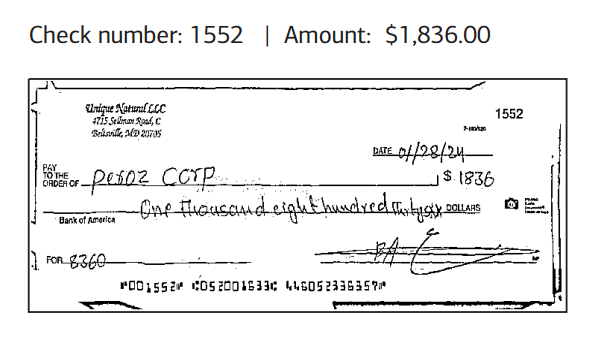 Check number: 1552 | Amount: $1,836.00
Unique Natural LLC
4715 Sellman Road, C
Beltsville, MD 20705
1552
DATE 01/28/24
PAY TO THE ORDER OF Peroz Corp
$ 1836
One thousand eight hundred thirty six DOLLARS
Bank of America
FOR 8360
⑈001552⑈ ⑆052001633⑆ 446052336357⑈